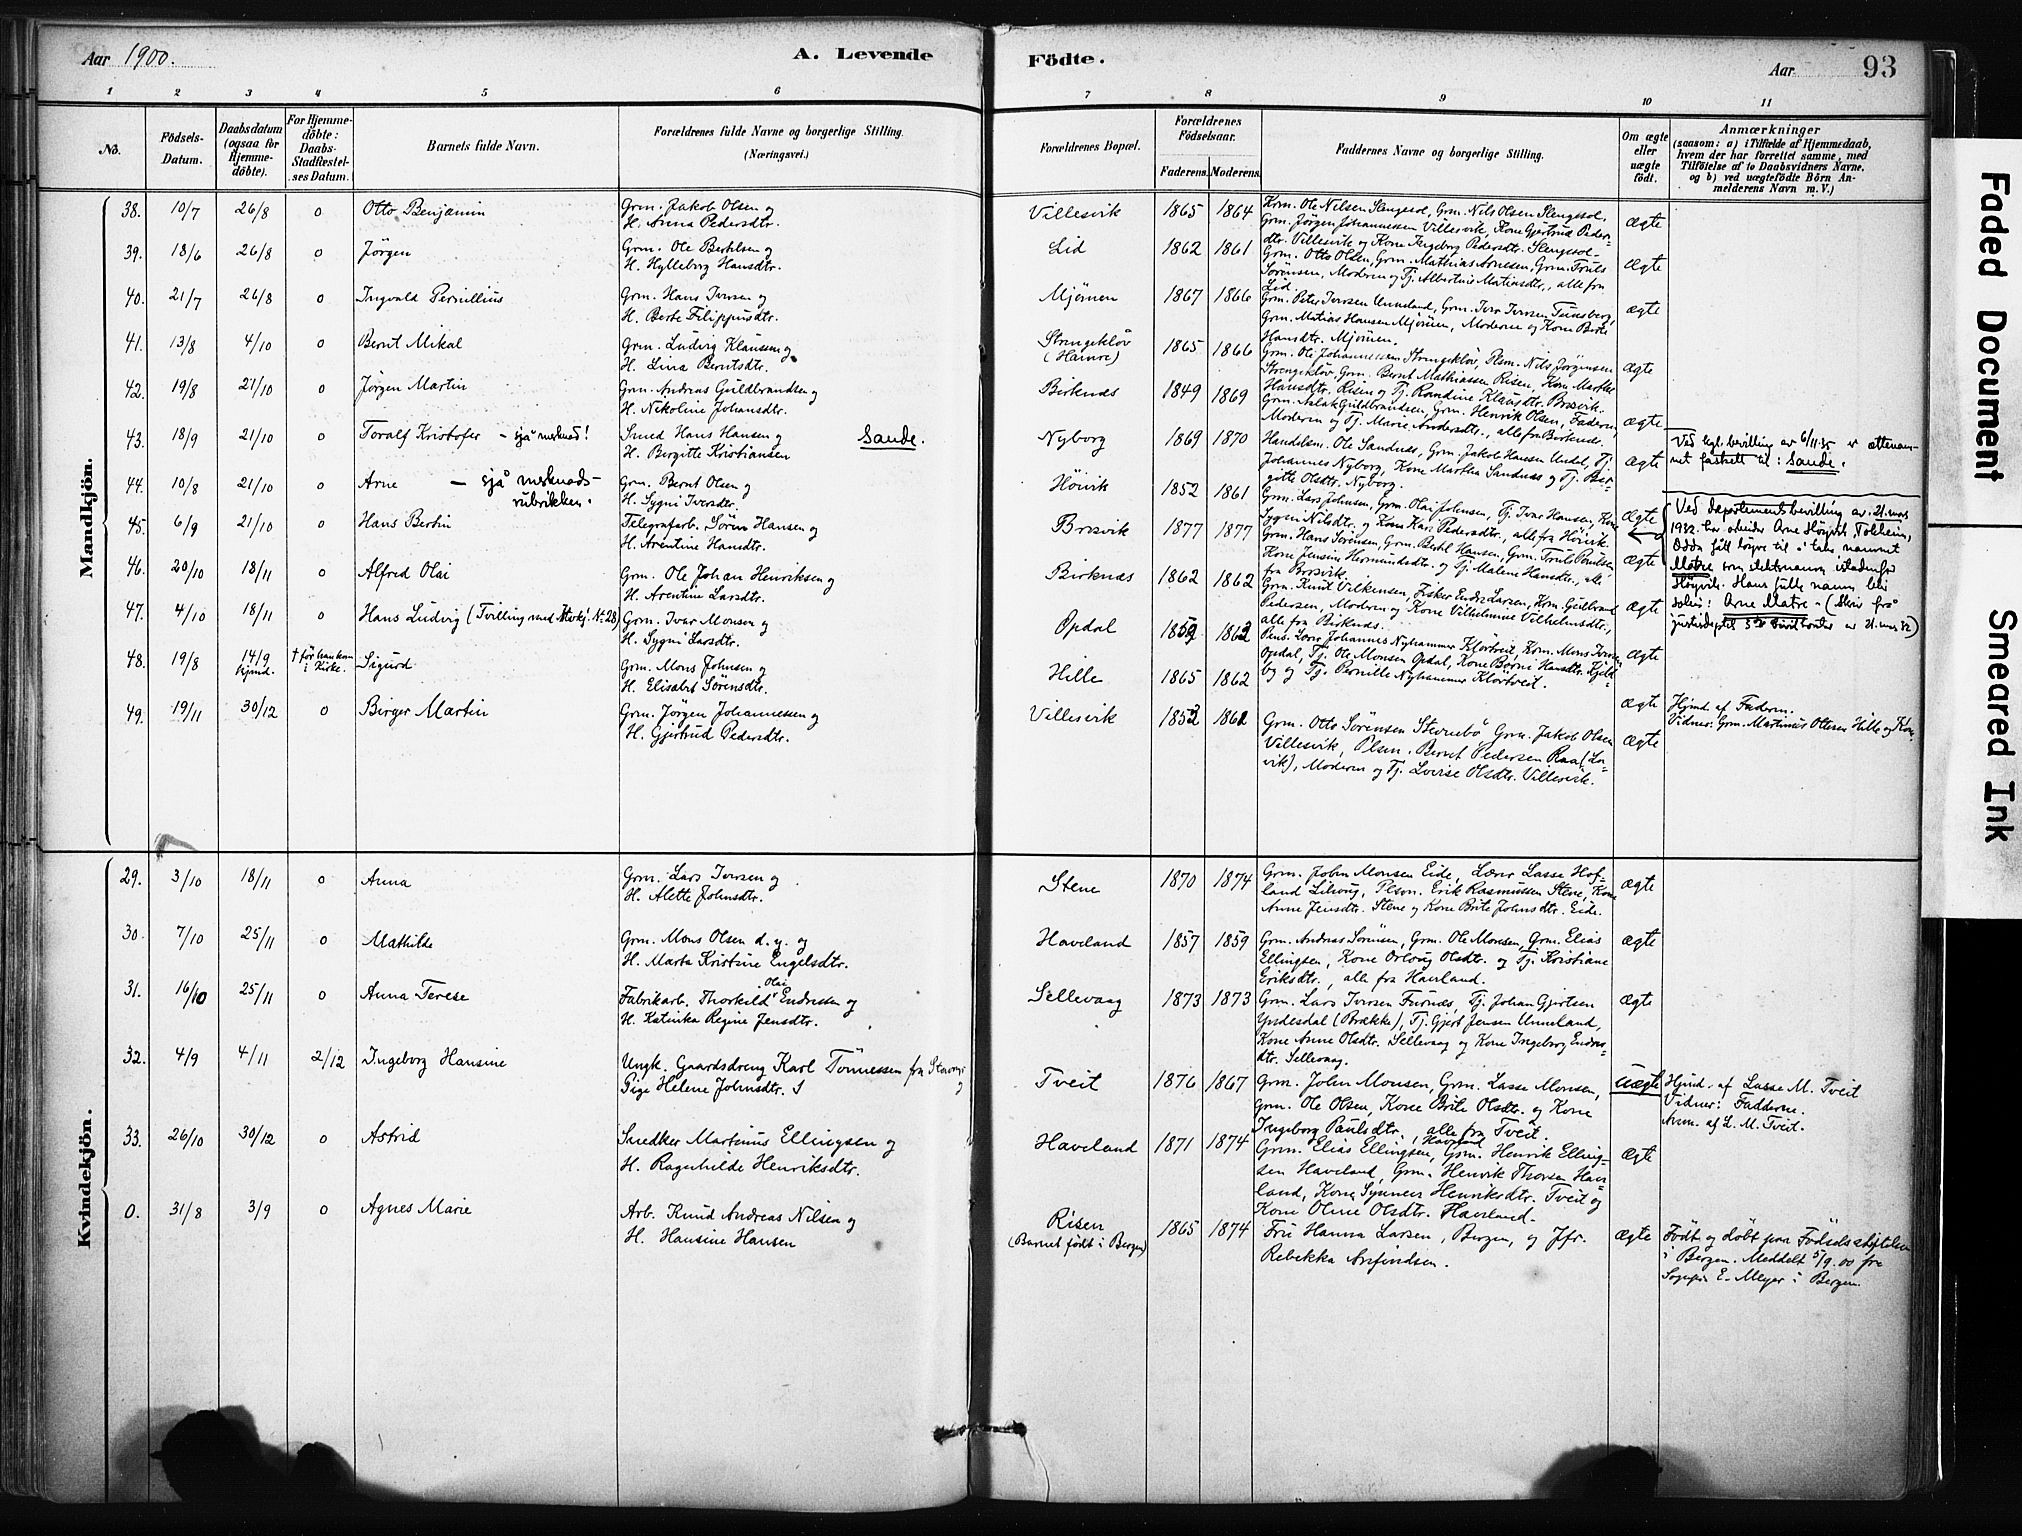 Aar 1900.
A. Levende
Födte.
Aar
93
1 2 3 4 5 6 7 8 9 10 11
No.
Födsels-Datum.
Daabsdatum (ogsaa for Hjemme-döbte).
For Hjemme-döbte: Daabs-Stadfæstel-ses Datum.
Barnets fulde Navn.
Forældrenes fulde Navne og borgerlige Stilling.
(Næringsvei.)
Forældrenes Bopæl.
Forældrenes Födselsaar.
Faderens. Moderens.
Faddernes Navne og borgerlige Stilling.
Om ægte eller uægte födt.
Anmærkninger
(saasom: a) i Tilfælde af Hjemmedaab,
hvem der har forrettet samme, med
Tilföielse af to Daabsvidners Navne,
og b) ved uægtefödte Börn An-
melderens Navn m. V.)
Mandkjön.
38. 10/7 26/8 0 Otto Benjamin
Grm. Jakob Olsen og
H. Anna Pedersdtr.
Villesvik 1865 1864
Krm. Ole Nilsen Slengesol, Grm. Nils Olsen Slengesol,
Grm. Jørgen Johannessen Villesvik, Kone Gjertrud Peders-
dtr. Villesvik og Kone Ingeborg Pedersdtr. Slengesol.
Ægte
39. 18/6 26/8 0 Jörgen
Grm. Ole Bertilsen og
H. Hylleborg Hansdtr.
Lid 1862 1861
Grm. Otto Olsen, Grm. Mathias Arnesen, Grm. Truls
Sörensen, Moderen og Tj. Albertine Matiasdtr., alle fra
Lid.
Ægte
40. 21/7 26/8 0 Ingvald Pernillius
Grm. Hans Iversen og
H. Berte Filippusdtr.
Mjömen 1867 1866
Grm. Peter Iversen Unneland, Grm. Ivar Iversen Tunsberg,
Grm. Matias Hansen Mjömen, Moderen og Kone Brite
Hansdtr. Mjömen.
Ægte
41. 13/8 4/10 0 Bernt Mikal
Grm. Ludvig Klausen og
H. Lina Berntsdtr.
Strengeklöv
(Hamre)
1865 1866
Grm. Ole Johannessen Strengeklöv, Plsm. Nils Jörgensen
Strengeklöv, Grm. Bernt Mathiassen Risen, Kone Marthe
Hansdtr. Risen og Tj. Randine Klausdtr. Brosvik.
Ægte
42. 19/8 21/10 0 Jörgen Martin
Grm. Andreas Guldbrandsen og
H. Nikoline Johansdtr.
Birknes 1849 1869
Grm. Aslak Guldbrandsen, Grm. Henrik Olsen, Faderen,
Moderen og Tj. Marie Andersdtr., alle fra Birknes.
Ægte
43. 18/9 21/10 0 Toralf Kristofer - sjå merknad!
Smed Hans Hansen og Sande.
H. Bergitte Kristiansen
Nyborg 1869 1870
Handelsm. Ole Sandnes, Grm. Jakob Hansen Undal, Tj.
Johannes Nyborg, Kone Martha Sandnes og Tj. Bir-
gitte Olsdtr. Nyborg.
Ægte
Ved kgl. bevilling av 6/11 35 er ættenam-
net fastsett til: Sande.
44. 10/8 21/10 0 Arne - sjå merknads-
rubrikken.
Grm. Bernt Olsen og
H. Sygni Iversdtr.
Höivik 1852 1861
Grm. Lars Johnsen, Grm. Olai Johnsen, Tj. Ivar Hansen, Kone
Sygni Nilsdtr. og Kone Kari Pedersdtr., alle fra Höivik.
Ægte
Ved departementsbevilling av 21. mars
1932 har arbeider Arne Höyvik, Tokheim,
Odda fått løyve til å taka namnet
Matre som slektsnamn istadenfor
Höyvik. Hans fulle namn blir
soleis: Arne Matre - (Skriv frå
justisdeptet av 21. mars 32)
45. 6/9 21/10 0 Hans Bertin
Telegrafarb. Sören Hansen og
H. Arentine Hansdtr.
Brosvik 1877 1877
Grm. Hans Sörensen, Grm. Bertil Hansen, Grm. Truls Paulsen,
Kone Jensine Hermundsdtr. og Tj. Malene Hansdtr., alle
fra Brosvik.
Ægte
46. 20/10 18/11 0 Alfred Olai
Grm. Ole Johan Henriksen og
H. Arentine Larsdtr.
Birknæs 1862 1862
Grm. Knut Vilkensen, Fisker Endre Larsen, Krm. Gulbrand
Pedersen, Moderen og Kone Vilhelmine Vilhelmsdtr.,
alle fra Birknes.
Ægte
47. 4/10 18/11 0 Hans Ludvig (Tvilling med No. 28)
Grm. Ivar Monsen og
H. Sygni Larsdtr.
Opdal
Pens. Lærer Johannes Nyhammer Klovtveit, Krm. Mons Iversen
Opdal, Tj. Ole Monsen Opdal, Kone Berni Hansdtr. Kjeld-
by og Tj. Pernille Nyhammer Klovtveit.
Ægte
48. 19/8 14/9 hjmd. † för han kom i Kirke. Sigurd
Grm. Mons Johnsen og
H. Elisabet Sörensdtr.
Hille 1865 1862
Ægte
Hjmd. af Faderen.
Vidner: Grm. Martinus Ottesen Hille og Kone.
49. 19/11 30/12 0 Birger Martin
Grm. Jörgen Johannessen og
H. Gjertrud Pedersdtr.
Villesvik
Grm. Otto Sörensen Steinebö, Grm. Jakob Olsen
Villesvik, Plsm. Bernt Pedersen Raa (La-
vik), Moderen og Tj. Lovise Olsdtr. Villesvik.
Ægte
Kvindekjön.
29. 3/10 18/11 0 Anna
Grm. Lars Iversen og
H. Alette Johnsdtr.
Stene 1870 1874
Grm. John Monsen Eide, Lærer Lasse Hof-
land Lihoug, Plsm. Erik Rasmussen Stene, Kone
Anne Jensdtr. Stene og Kone Brite Johnsdtr. Eide.
Ægte
30. 7/10 25/11 0 Mathilde
Grm. Mons Olsen d. y. og
H. Marta Kristine Engelsdtr.
Haveland 1857 1859
Grm. Andreas Sörensen, Grm. Ole Monsen, Grm. Elias
Ellingsen, Kone Orloug Olsdtr. og Tj. Kristiane
Eriksdtr., alle fra Haveland.
Ægte
31. 16/10 25/11 0 Anna Terese
Fabrikarb. Thorkild Olai Endresen og
H. Katinka Regine Jensdtr.
Sellevaag 1873 1873
Grm. Lars Iversen Furnæs, Tj. Johan Gjertsen
Yndesdal (Brække), Tj. Gjert Jensen Unneland,
Kone Anne Olsdtr. Sellevaag og Kone Ingeborg Endres-
dtr. Sellevaag.
Ægte
32. 4/9 4/11 2/12 Ingeborg Hansine
Ungk. Gaardsdreng Karl Tönnessen fra Stavanger og
Pige Helene Johnsdtr.
Tveit 1876 1867
Grm. John Monsen, Grm. Lasse Monsen,
Grm. Ole Olsen, Kone Brite Olsdtr. og Kone
Ingeborg Paulsdtr., alle fra Tveit.
Uægte
Hjmd. af Lasse M. Tveit
Vidner: Fadderne.
Anm. af L. M. Tveit.
33. 26/10 30/12 0 Astrid
Snedker Martinus Ellingsen og
H. Ragnhilde Henriksdtr.
Haveland 1871 1874
Grm. Elias Ellingsen, Haveland Grm. Henrik Elling-
sen Haveland, Grm. Henrik Thorsen Have-
land, Kone Synneve Henriksdtr. Tveit og
Kone Oline Olsdtr. Haveland.
Ægte
0. 31/8 3/9 0 Agnes Marie
Arb. Knud Andreas Nilsen og
H. Hansine Hansen
Risen
(Barnet födt i Bergen)
1865 1874
Fru Hanna Larsen, Bergen, og Jfr.
Rebekka Arnfindsen.
Ægte
Födt og döbt paa Födselsstiftelsen
i Bergen. Meddelt 5/9. 00 fra
Sognepr. E. Meyer i Bergen.
Faded Document
Smeared Ink